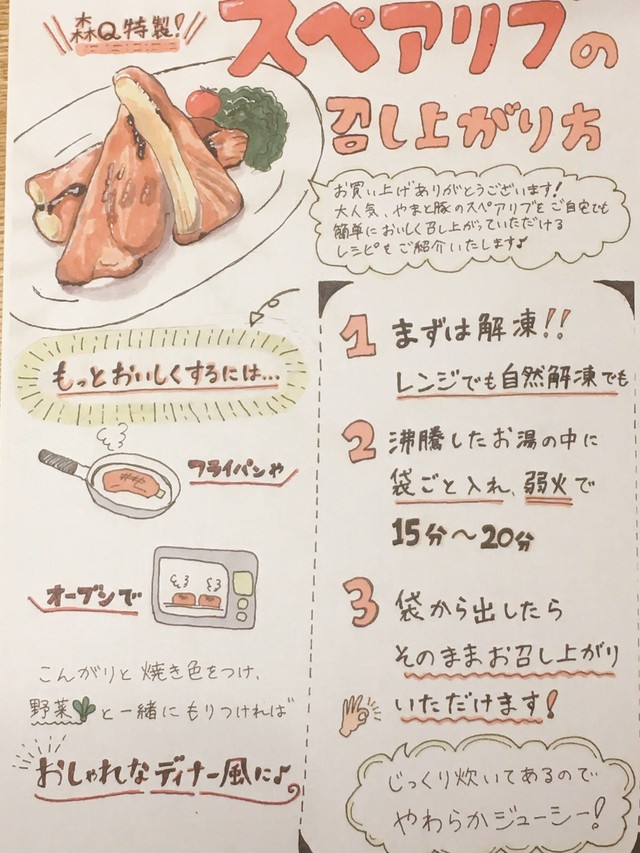 森Q特製!
スペアリブの
召し上がり方
お買い上げありがとうございます!
大人気、やまと豚のスペアリブをご自宅でも
簡単においしく召し上がっていただける
レシピをご紹介いたします♪
1 まずは解凍!!
レンジでも自然解凍でも
2 沸騰したお湯の中に
袋ごと入れ、弱火で
15分〜20分
3 袋から出したら
そのままお召し上がり
いただけます!
じっくり炊いてあるので
やわらかジューシー!
もっとおいしくするには…
フライパンや
オーブンで
こんがりと焼き色をつけ、
野菜と一緒にもりつければ
おしゃれなディナー風に♪